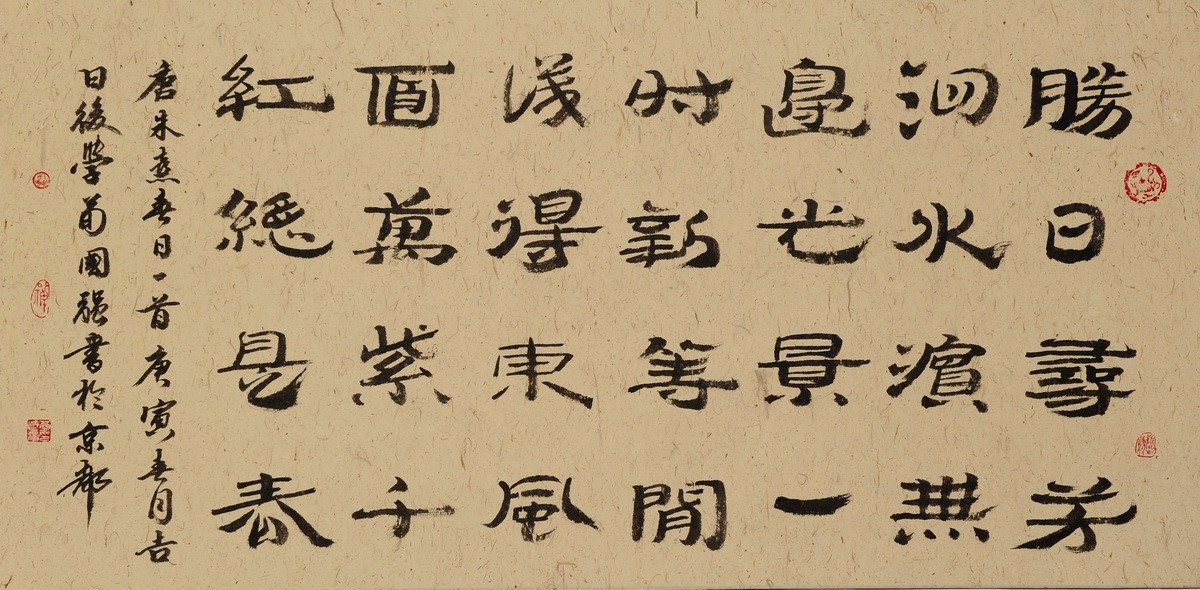 勝日尋芳
泗水濱無
邊光景一
时新等閒
識得東風
面萬紫千
紅總是春
唐朱熹春日一首庚寅春月吉
日後學國强書於京都